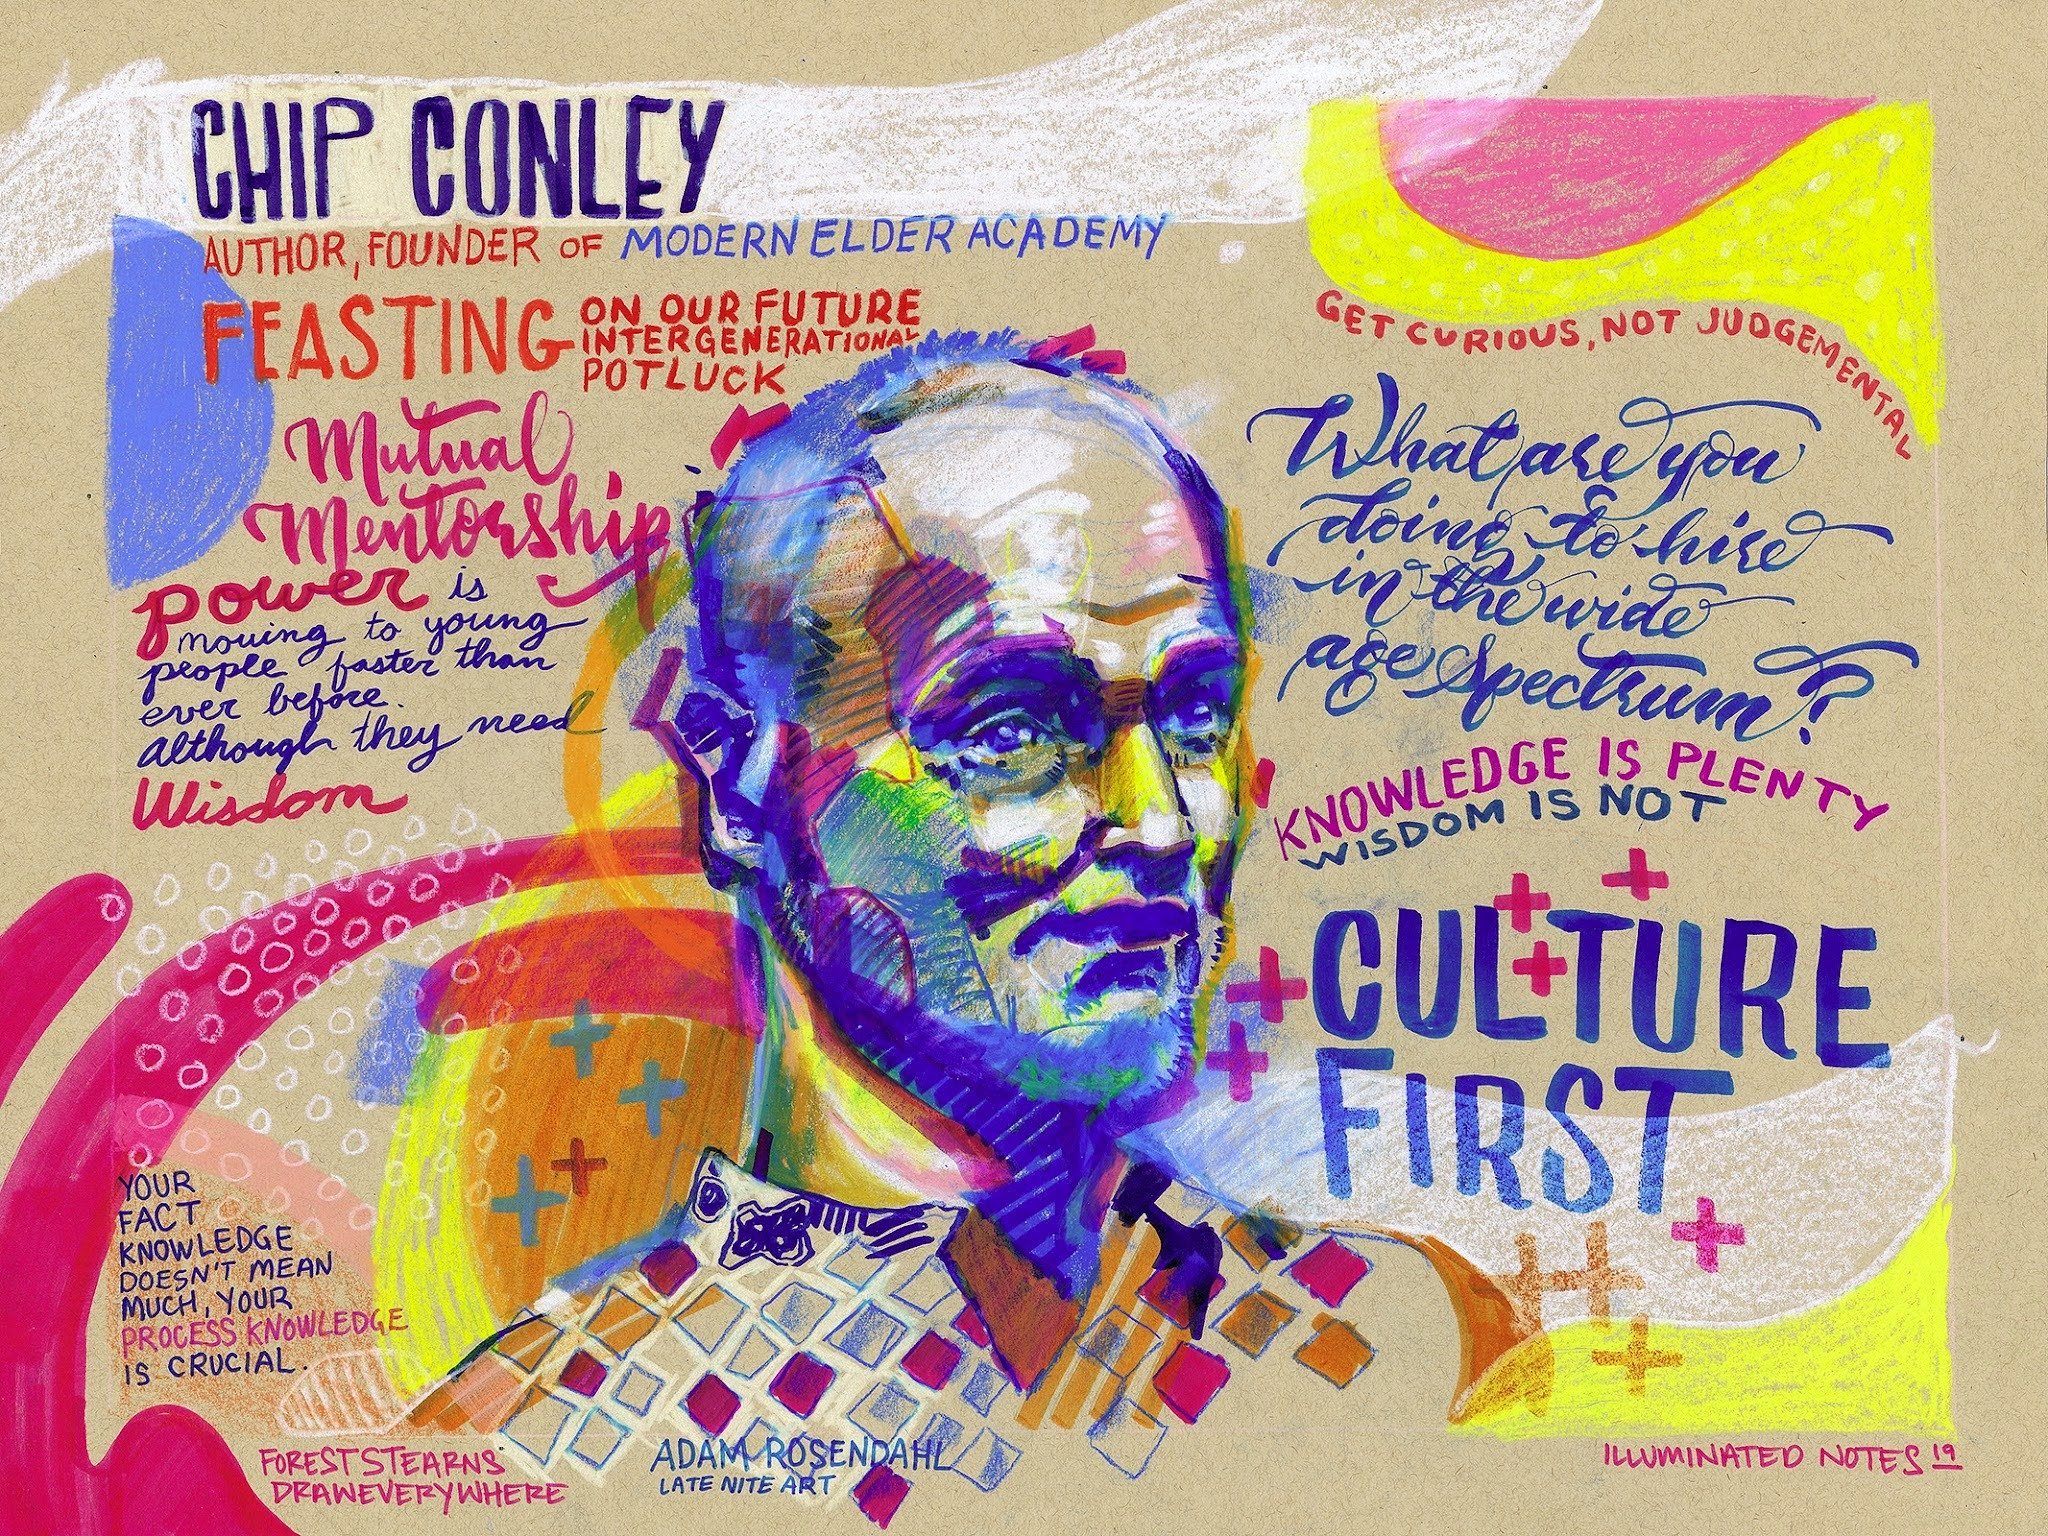 CHIP CONLEY
AUTHOR, FOUNDER OF MODERN ELDER ACADEMY
FEASTING ON OUR FUTURE
INTERGENERATIONAL
POTLUCK
Mutual
Mentorship
power is
moving to young
people faster than
ever before.
Although they need
Wisdom
YOUR
FACT
KNOWLEDGE
DOESN'T MEAN
MUCH, YOUR
PROCESS KNOWLEDGE
IS CRUCIAL.
GET CURIOUS, NOT JUDGEMENTAL
What are you
doing to hire
in the wide
age spectrum?
KNOWLEDGE IS PLENTY
WISDOM IS NOT
CULTURE
FIRST
FOREST STEARNS
DRAWEVERYWHERE
ADAM ROSENDAHL
LATE NITE ART
ILLUMINATED NOTES 19